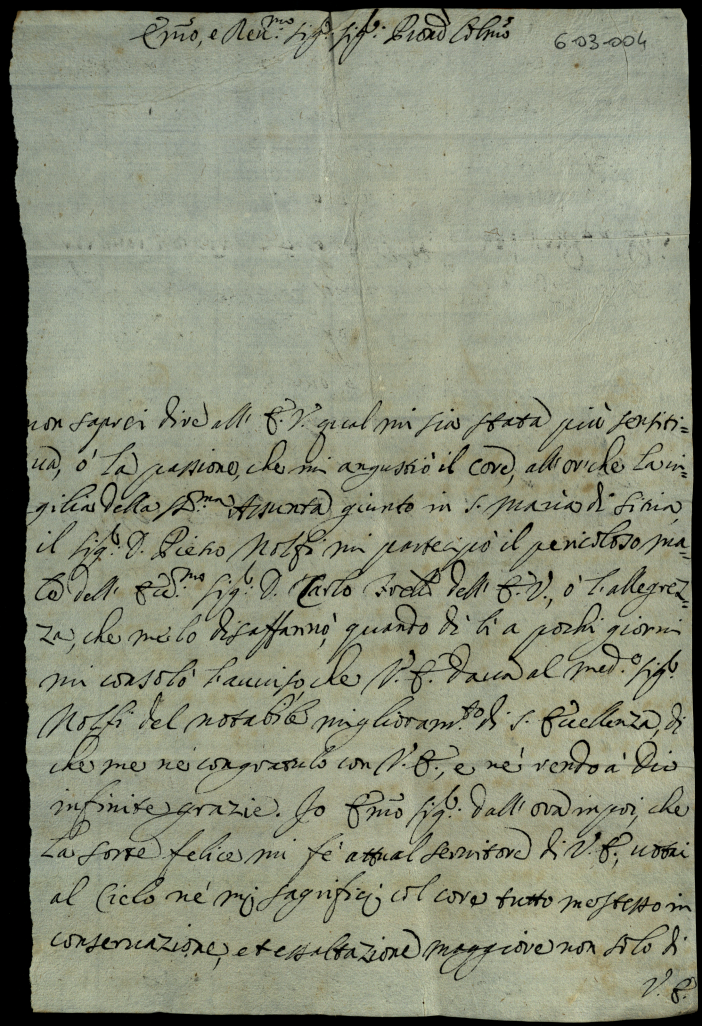 Emo, e Rev.mo Sig.r Sig.r Pron Colmo
6-03-004
non saprei dire all' E. V. qual mi sia stata più sensiti=
va, ò la passione, che mi angustiò il core, all'or che la vi=
gilia della SS.ma Assunta giunto in S. Maria di Sitria
il Sig.r D. Pietro Nolfi mi partecipò il pericoloso ma=
le dell' Ecc.mo Sig.r D. Carlo frello dell' E. V., ò l'allegrez=
za, che me lo disaffannò, quando di lì a pochi giorni
mi consolò l'avviso, che V. E. dava al med.o Sig.r
Nolfi del notabile miglioram.to di S. Eccellenza, di
che me ne congratulo con V. E., e ne rendo à Dio
infinite grazie. Io Emo Sig.r dall' ora in poi, che
la sorte felice mi fé attual servitore di V. E., votai
al Cielo né mij sagrificij col core tutto me stesso in
conservazione, et essaltazione maggiore non solo di
V. E.